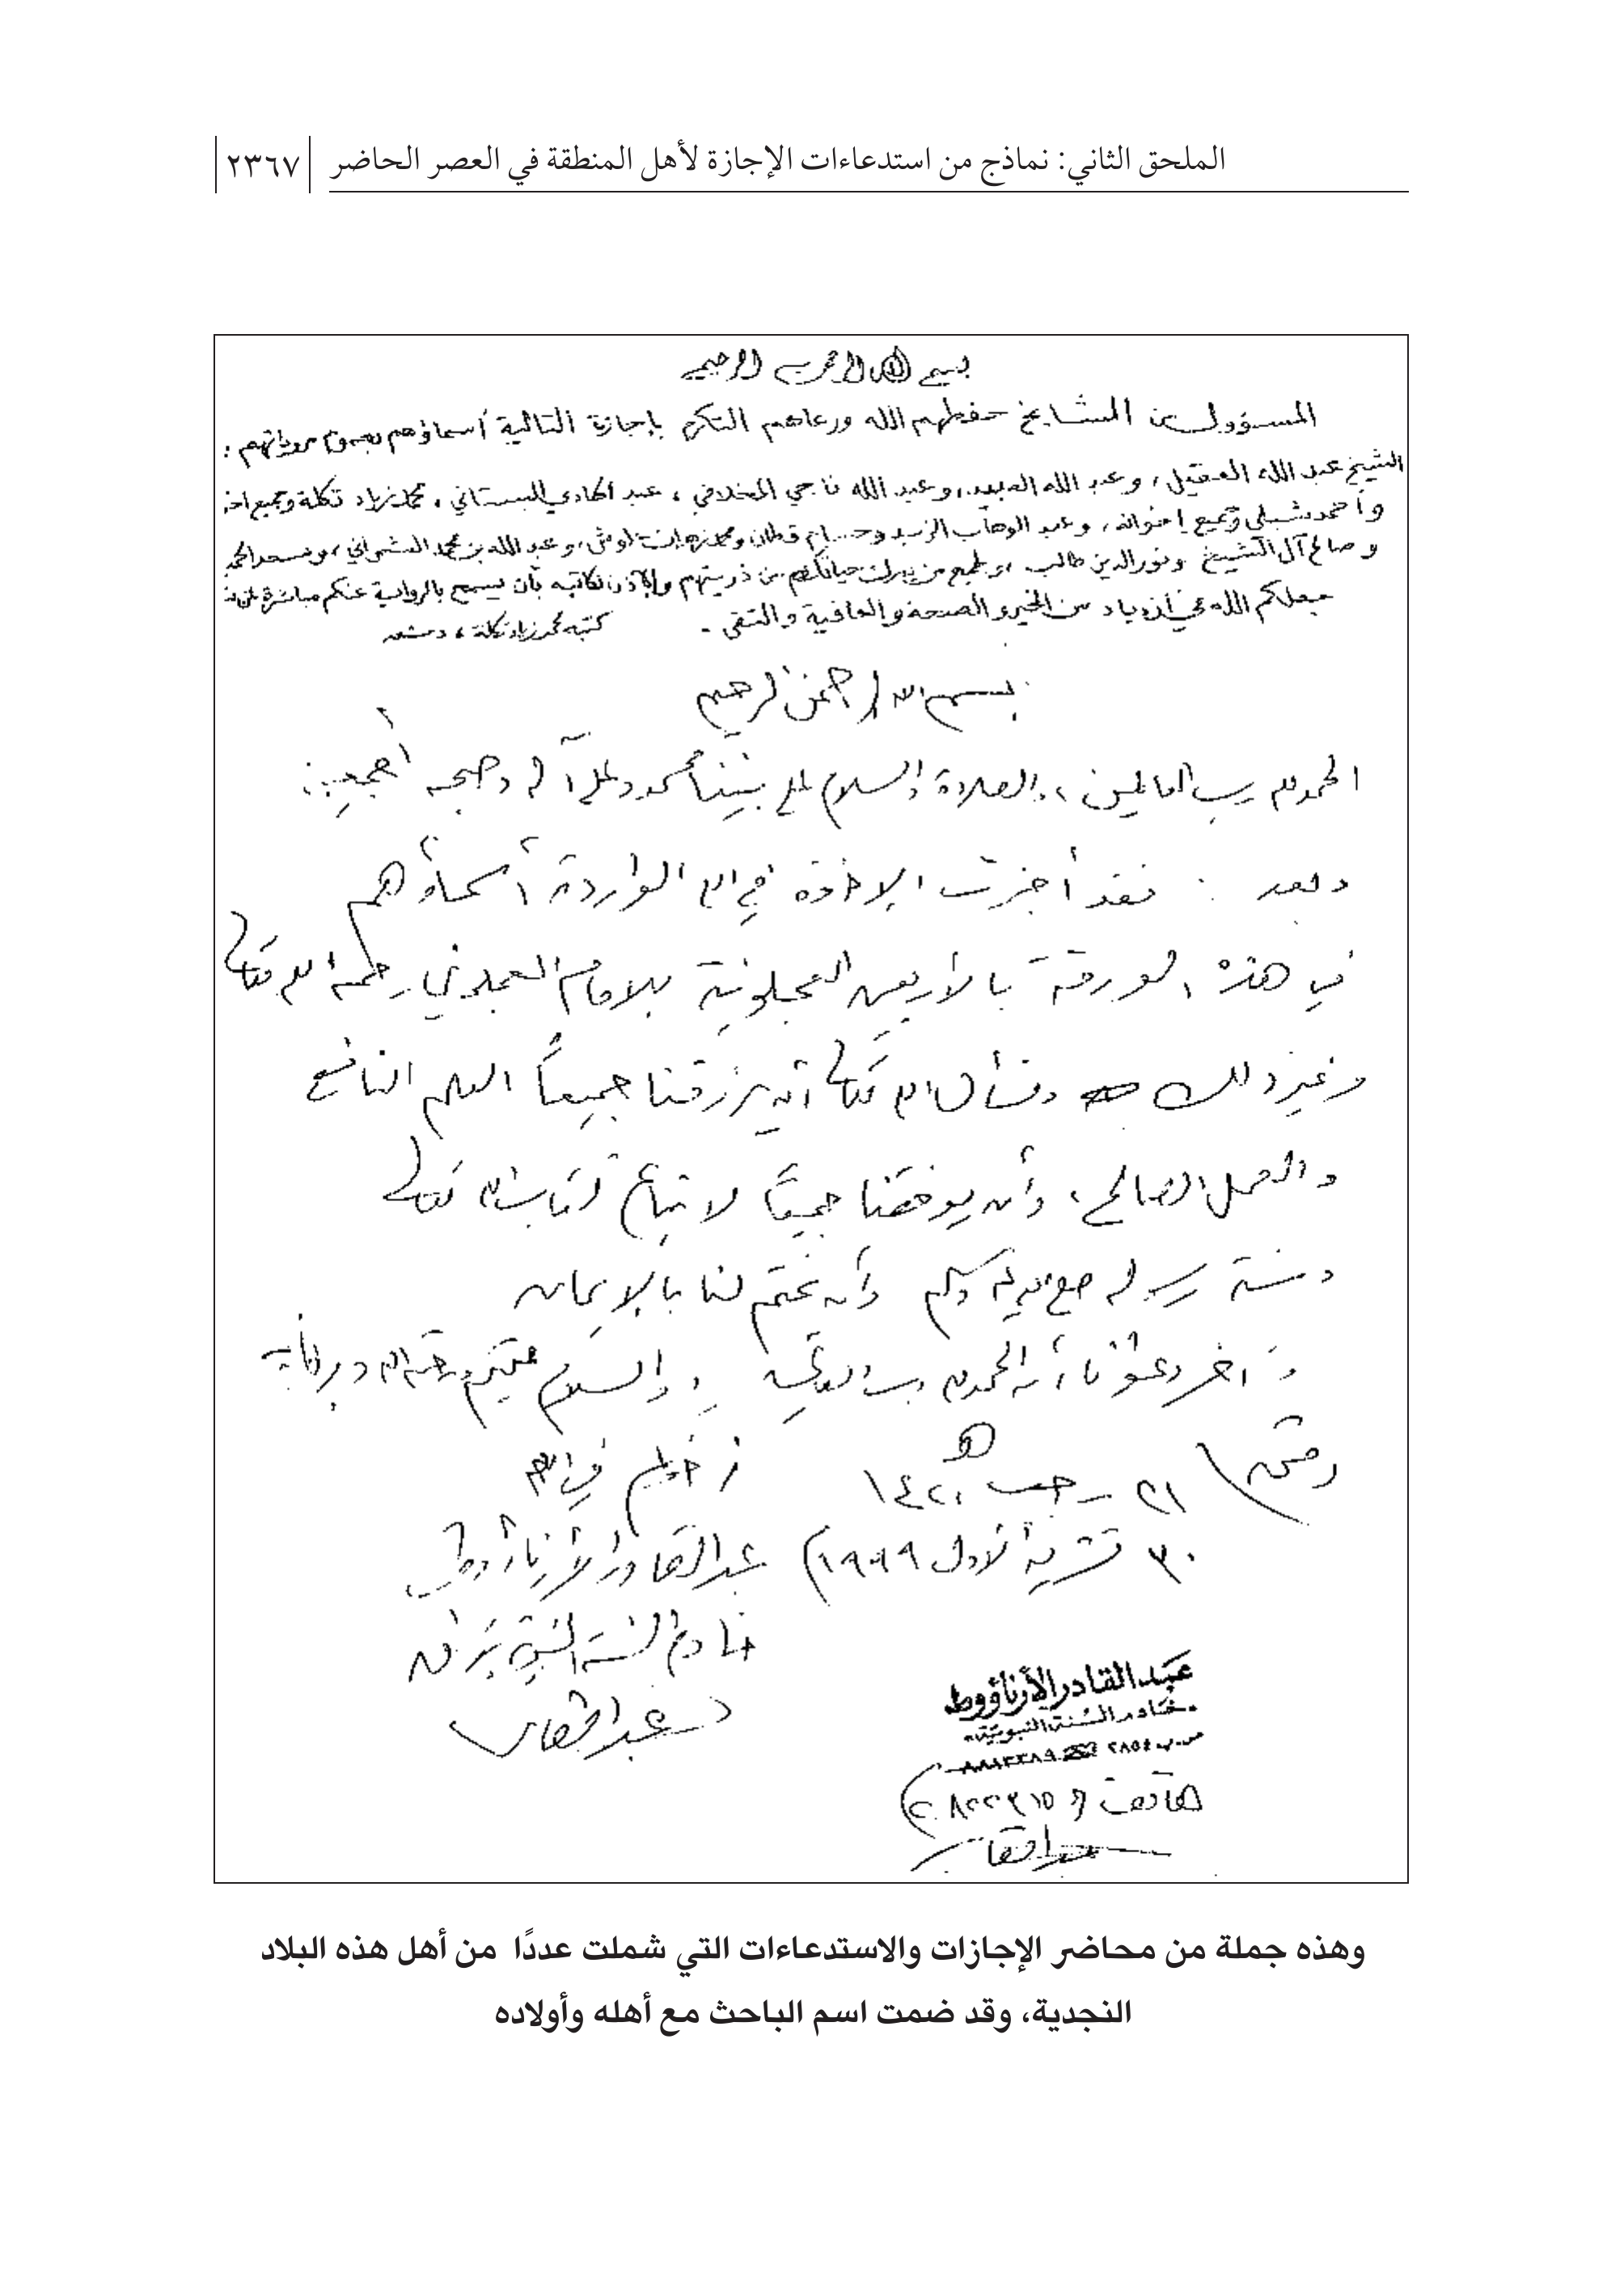 الملحق الثاني: نماذج من استدعاءات الإجازة لأهل المنطقة في العصر الحاضر ٢٣٦٧
بسم الله الرحمن الرحيم
المسؤول من المشايخ حفظهم الله ورعاهم التكرم بإجازة التالية أسماؤهم بجميع مروياتهم :
الشيخ عبد الله العقيل، وعبد الله العبيد، وعبد الله ناجي المخلافي، عبد الهادي البستاني، محمد زياد تكلة وجميع
وأحمد شبلي وجميع إخوانه، وعبد الوهاب الزيد وحسام قطان ومحمد، وعبد الله بن محمد الشمراني، ومسعد
وصالح آل الشيخ ونور الدين طالب، ولجميع من يدرك حياتكم من ذريتهم والإذن لكاتبه بأن يسمح بالرواية عنكم مباشرة
جعلكم الله في ازدياد من الخير والصحة والعافية والتقى.
كتبه محمد زياد تكلة، دمشق
بسم الله الرحمن الرحيم
الحمد لله رب العالمين، والصلاة والسلام على نبينا محمد وعلى آله وصحبه أجمعين:
وبعد: فقد أجزت الإخوة في الله الواردة أسماؤهم
في هذه الورقة بالأربعين العجلونية للإمام العجلوني رحمه الله تعالى
وغير ذلك ونسأل الله تعالى أن يرزقنا جميعاً العلم النافع
والعمل الصالح، وأن يوفقنا جميعاً لاتباع كتاب الله تعالى
وسنة رسوله صلى الله عليه وسلم وأن يختم لنا بالإيمان
وآخر دعوانا أن الحمد لله رب العالمين، والسلام عليكم ورحمة الله وبركاته
دمشق ٢١ رجب ١٤٢٠ هـ
أخوكم في الله
٣٠ تشرين الأول ١٩٩٩
عبد القادر الأرناؤوط
خادم السنة النبوية
عبد القادر الأرناؤوط
خادم السنة النبوية
هاتف
وهذه جملة من محاضر الإجازات والاستدعاءات التي شملت عددًا من أهل هذه البلاد
النجدية، وقد ضمت اسم الباحث مع أهله وأولاده